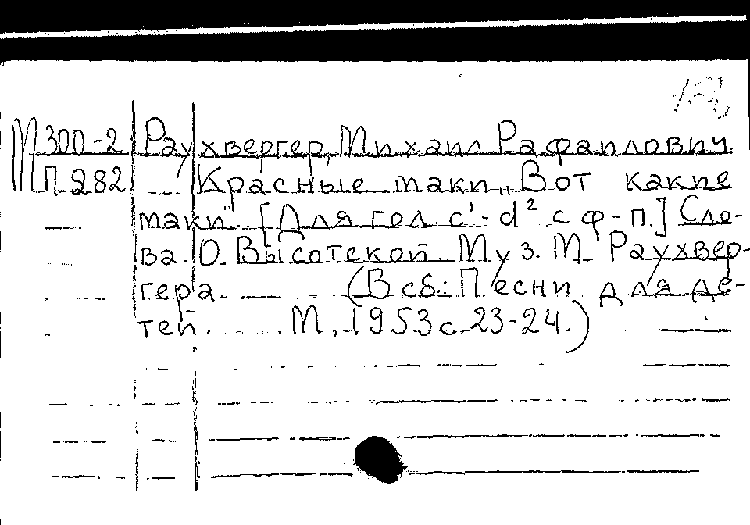 М 300-2 Раухвергер, Михаил Рафаилович.
П 282 Красные маки „Вот какие
маки" [Для гол. c¹-d² с ф-п.] Сло-
ва О. Высотской Муз. М. Раухвер-
гера. (В сб.: Песни для де-
тей. М., 1953 с. 23-24.)